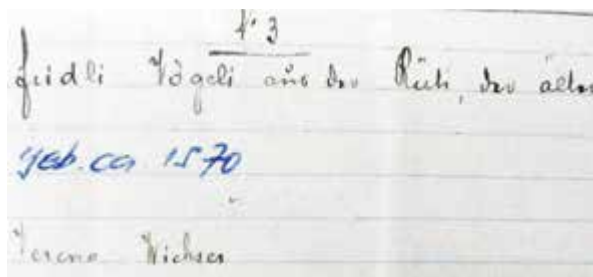 N. 3
Fridli Vögeli aus der Rüti, der älter
geb. ca 1570
Verena Wichser